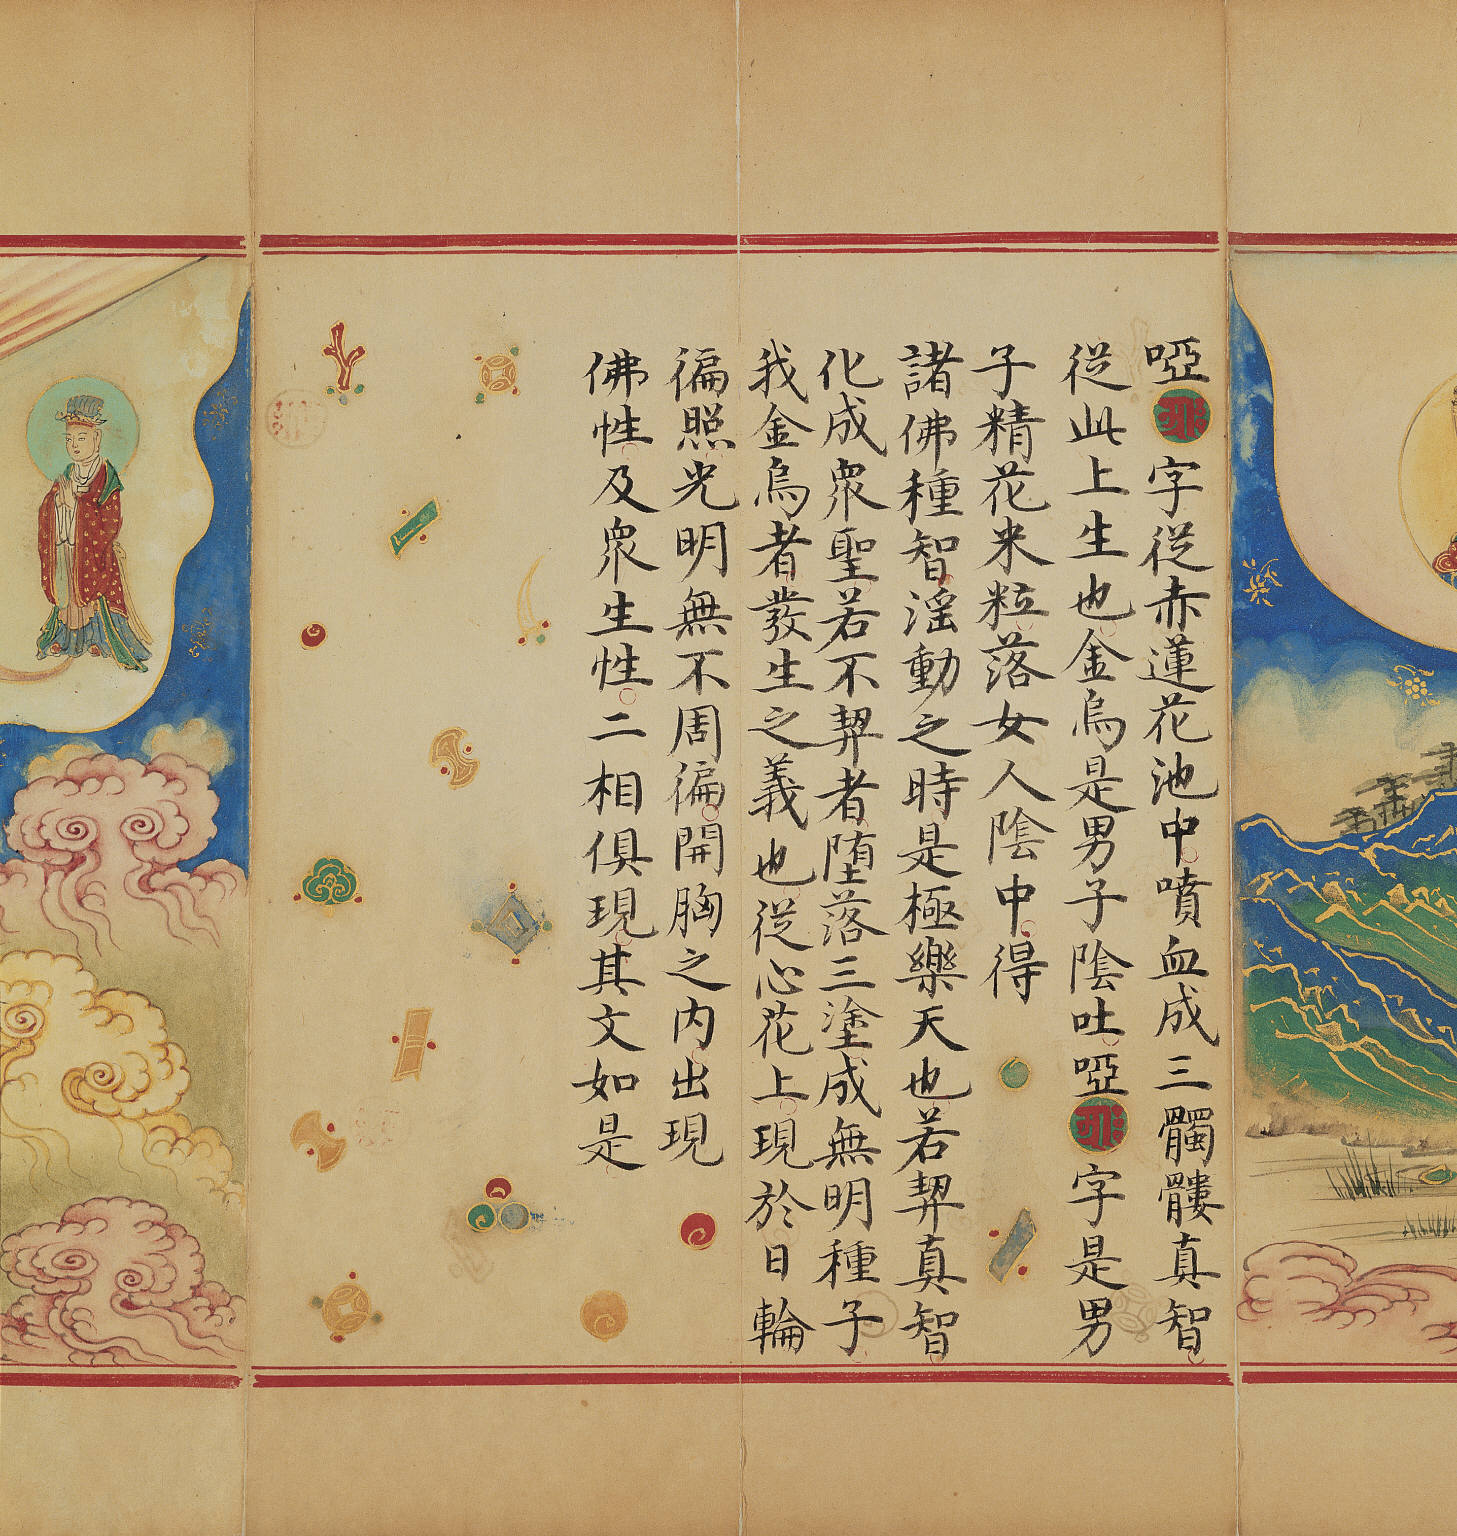 啞字從赤蓮花池中噴血成三髑髏真智
從此上生也金烏是男子陰吐啞字是男
子精花米粒落女人陰中得
諸佛種智滛動之時是極樂天也若契真智
化成衆聖若不契者堕落三塗成無明種子
我金烏者發生之義也從心花上現於日輪
徧照光明無不周徧開胸之内出現
佛性及衆生性二相俱現其文如是